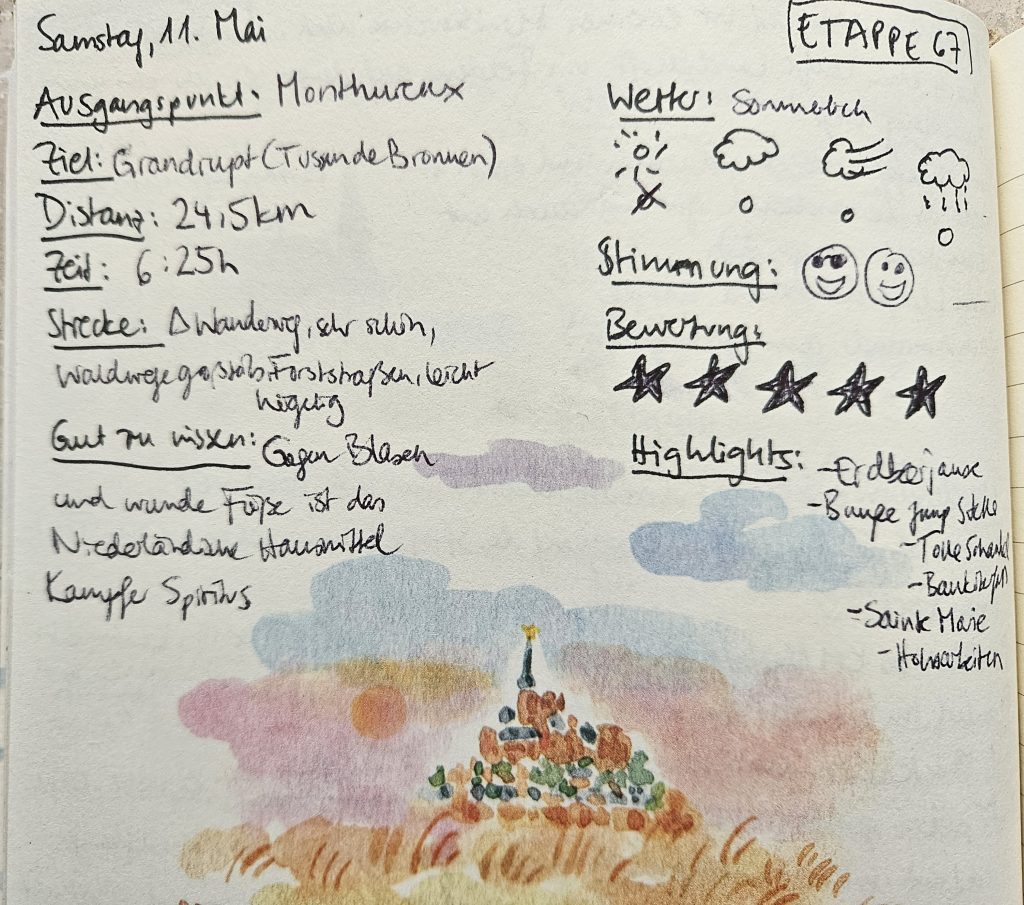 Samstag, 11. Mai
ETAPPE 67
Ausgangspunkt: Monthureux
Ziel: Grandrupt (Tussen de Bronnen)
Distanz: 24,5km
Zeit: 6:25h
Strecke: Δ Wanderweg, sehr schön,
Waldwege großteils, Forststraßen, leicht
hügelig
Gut zu wissen: Gegen Blasen
und wunde Füße ist das
Niederländische Hausmittel
Kampfer Spiritus
Wetter: Sommerlich
Stimmung:
Bewertung:
Highlights: - Erdbeerjause
- Bungee Jump Stelle
- Tolle
-
- Saink Marie
- Holzarbeiten